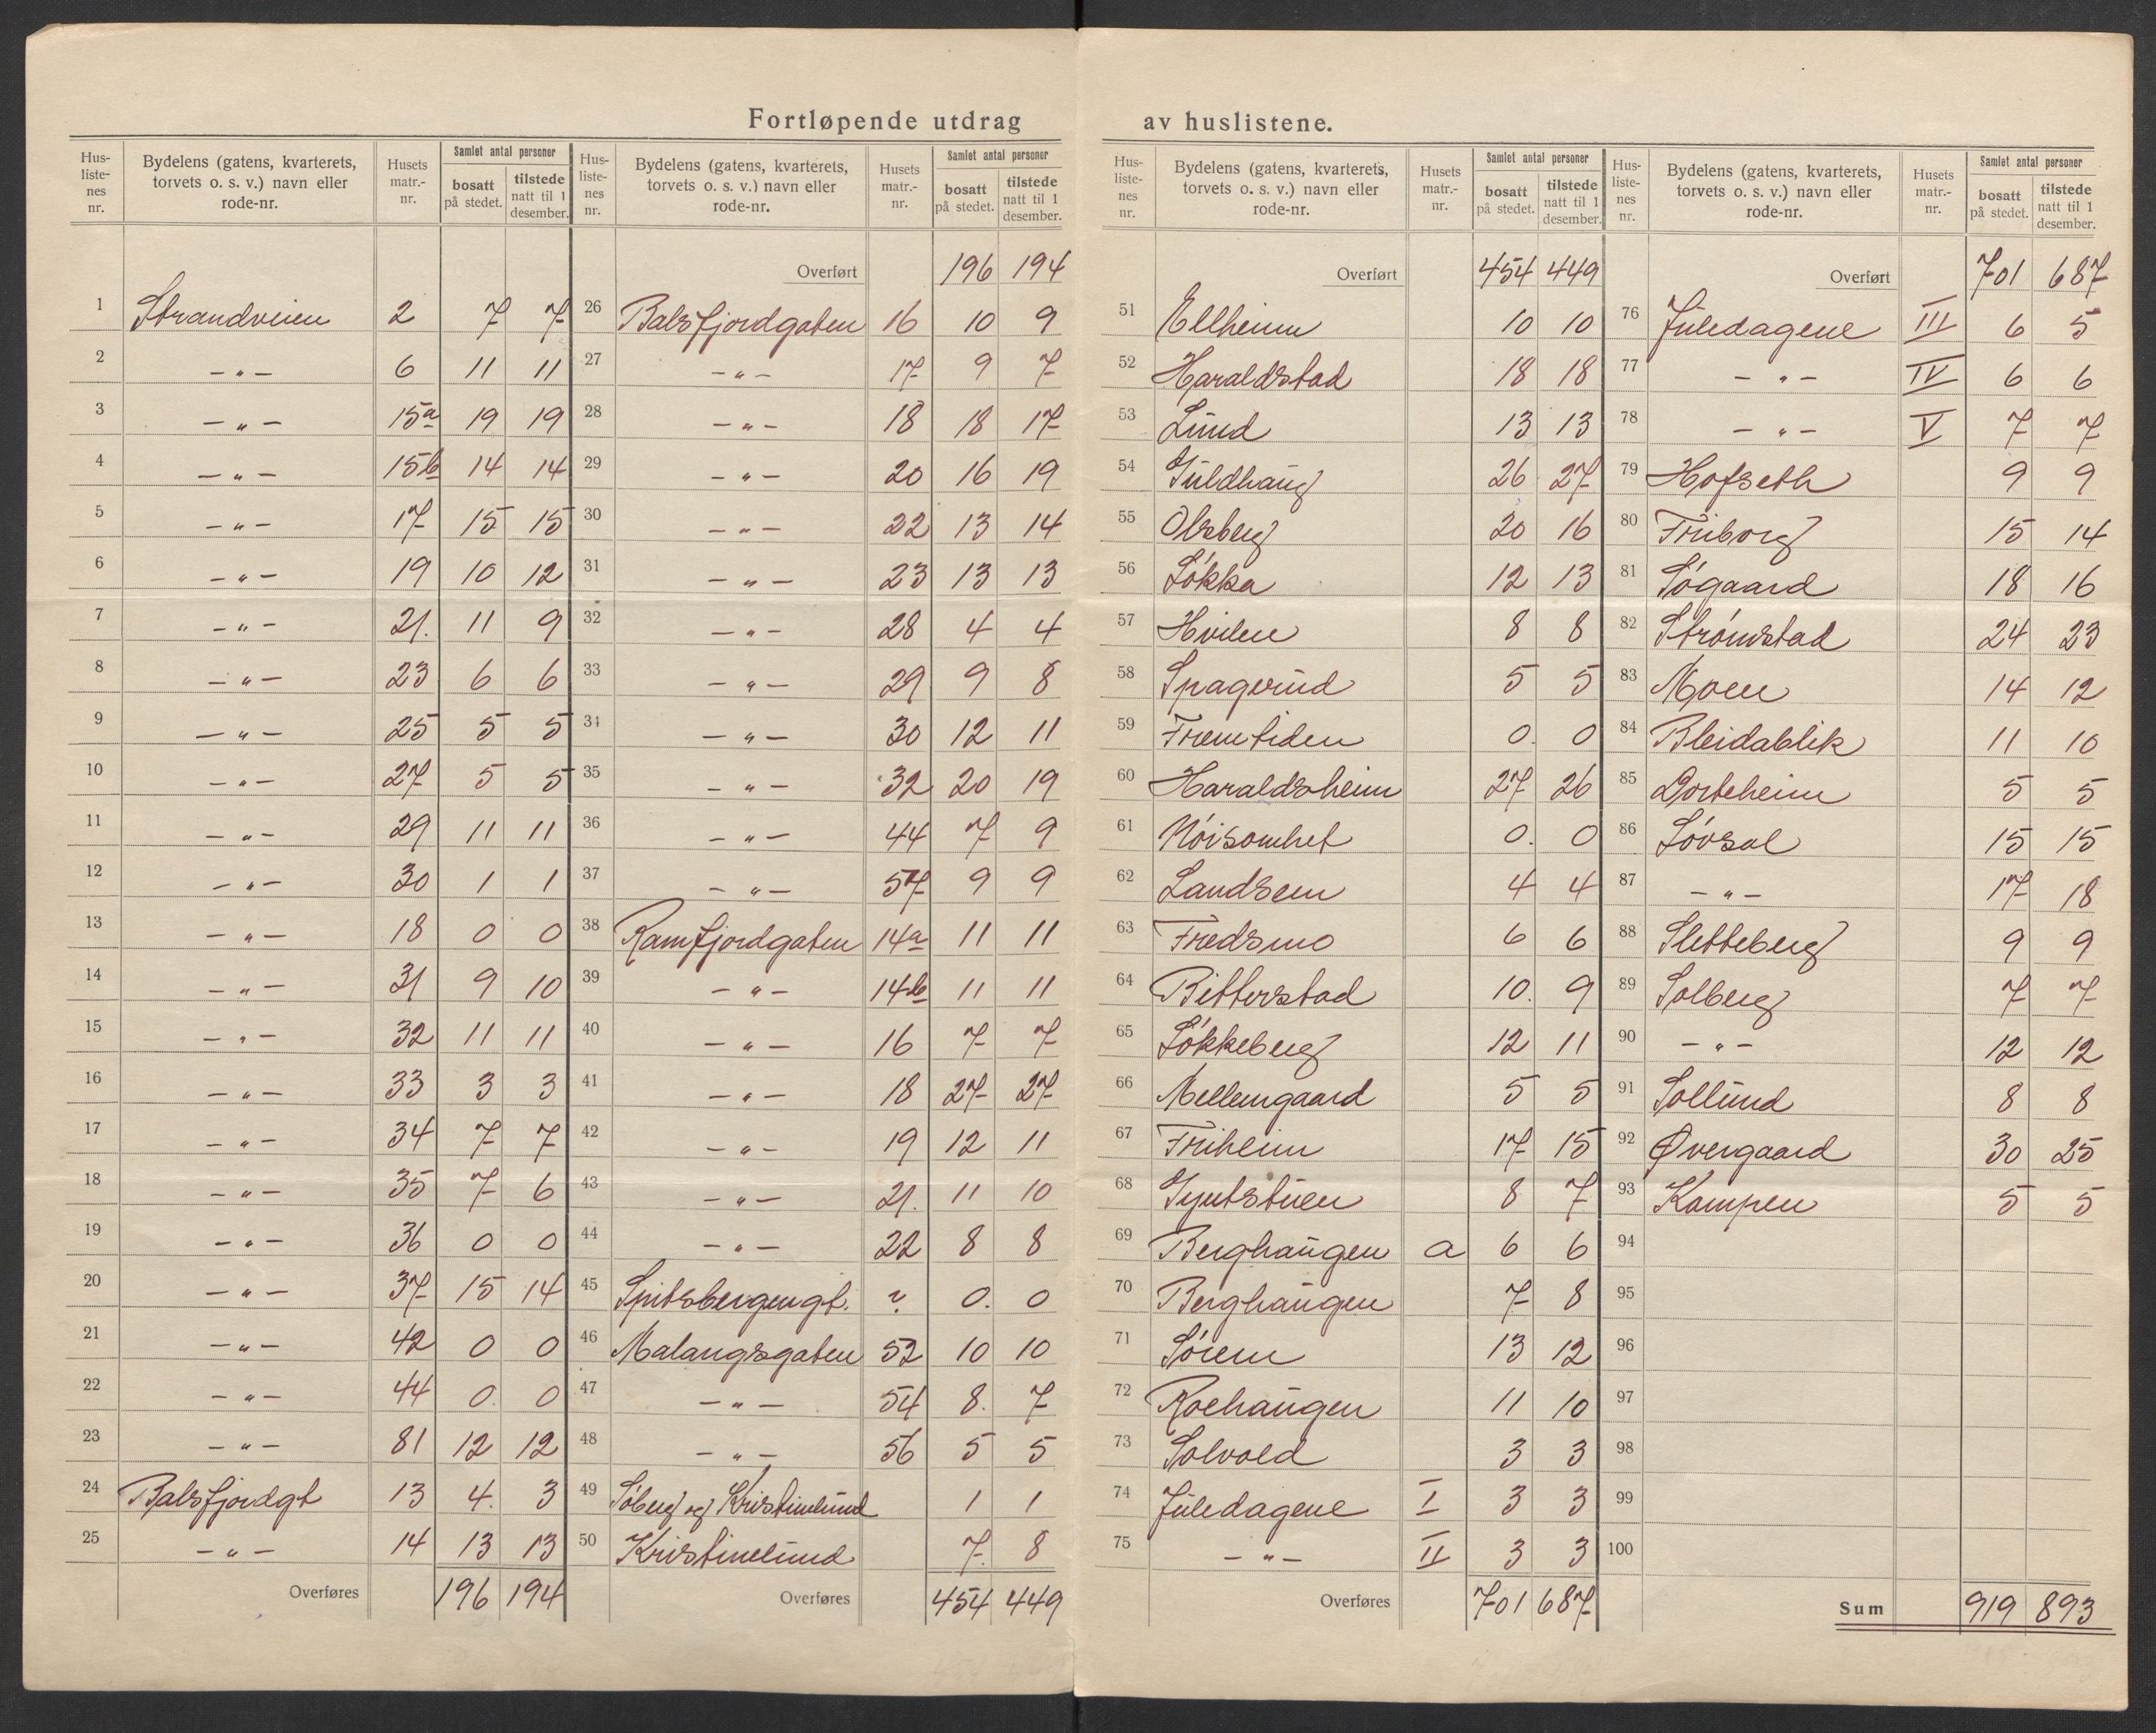 Fortløpende utdrag av huslistene.
Hus-liste-nes nr. | Bydelens (gatens, kvarterets, torvets o. s. v.) navn eller rode-nr. | Husets matr.-nr. | Samlet antal personer bosatt på stedet. | tilstede natt til 1 desember.
1 Strandveien 2 7 7
2 — „ — 6 11 11
3 — „ — 15a 19 19
4 — „ — 15b 14 14
5 — „ — 17 15 15
6 — „ — 19 10 12
7 — „ — 21. 11 9
8 — „ — 23 6 6
9 — „ — 25 5 5
10 — „ — 27 5 5
11 — „ — 29 11 11
12 — „ — 30 1 1
13 — „ — 18 0 0
14 — „ — 31 9 10
15 — „ — 32 11 11
16 — „ — 33 3 3
17 — „ — 34 7 7
18 — „ — 35 7 6
19 — „ — 36 0 0
20 — „ — 37 15 14
21 — „ — 42 0 0
22 — „ — 44 0. 0
23 — „ — 81 12 12
24 Balsfjordgt 13 4. 3
25 — „ — 14 13 13
Overføres 196 194
Hus-liste-nes nr. | Bydelens (gatens, kvarterets, torvets o. s. v.) navn eller rode-nr. | Husets matr.-nr. | Samlet antal personer bosatt på stedet. | tilstede natt til 1 desember.
Overført 196 194
26 Balsfjordgaten 16 10 9
27 — „ — 17 9 7
28 — „ — 18 18 17
29 — „ — 20 16 19
30 — „ — 22 13 14
31 — „ — 23 13 13
32 — „ — 28 4 4
33 — „ — 29 9 8
34 — „ — 30 12 11
35 — „ — 32 20 19
36 — „ — 44 7 9
37 — „ — 57 9 9
38 Ramfjordgaten 14a 11 11
39 — „ — 14b 11 11
40 — „ — 16 7 7
41 — „ — 18 27 27
42 — „ — 19 12 11
43 — „ — 21. 11 10
44 — „ — 22 8 8
45 Spitsbergengt. ? 0. 0
46 Malangsgaten 52 10 10
47 — „ — 54 8. 7
48 — „ — 56 5 5
49 Söberg og Kristinelund 1 1
50 Kristinelund 7. 8
Overføres 454 449
Hus-liste-nes nr. | Bydelens (gatens, kvarterets, torvets o. s. v.) navn eller rode-nr. | Husets matr.-nr. | Samlet antal personer bosatt på stedet. | tilstede natt til 1 desember.
Overført 454 449
51 Ellheim 10 10
52 Haraldstad 18 18
53 Lund 13 13
54 Guldhaug 26 27
55 Olsberg 20 16
56 Løkka 12 13
57 Hvilen 8 8
58 Spagerud 5 5
59 Fremtiden 0. 0
60 Haraldsheim 27 26
61 Nøisomhet 0. 0
62 Landsem 4 4
63 Fredsmo 6 6
64 Bitterstad 10. 9
65 Løkkeberg 12 11
66 Mellemgaard 5 5
67 Friheim 17 15
68 Gyntstuen 8 7
69 Berghaugen a 6 6
70 Berghaugen 7 8
71 Sørem 13 12
72 Roehaugen 11 10
73 Solvold 3 3
74 Juledagene I 3 3
75 — „ — II 3 3
Overføres 701 687
Hus-liste-nes nr. | Bydelens (gatens, kvarterets, torvets o. s. v.) navn eller rode-nr. | Husets matr.-nr. | Samlet antal personer bosatt på stedet. | tilstede natt til 1 desember.
Overført 701 687
76 Juledagene III 6 5
77 — „ — IV 6 6
78 — „ — V 7 7
79 Hofseth 9 9
80 Friborg 15 14
81 Søgaard 18 16
82 Strømstad 24 23
83 Moen 14 12
84 Bleidablik 11 10
85 Dorteheim 5 5
86 Løvsal 15 15
87 — „ — 17 18
88 Sletteberg 9 9
89 Solberg 7 7
90 — „ — 12 12
91 Sollund 8 8
92 Øvergaard 30 25
93 Kampen 5 5
94
95
96
97
98
99
100
Sum 919 893